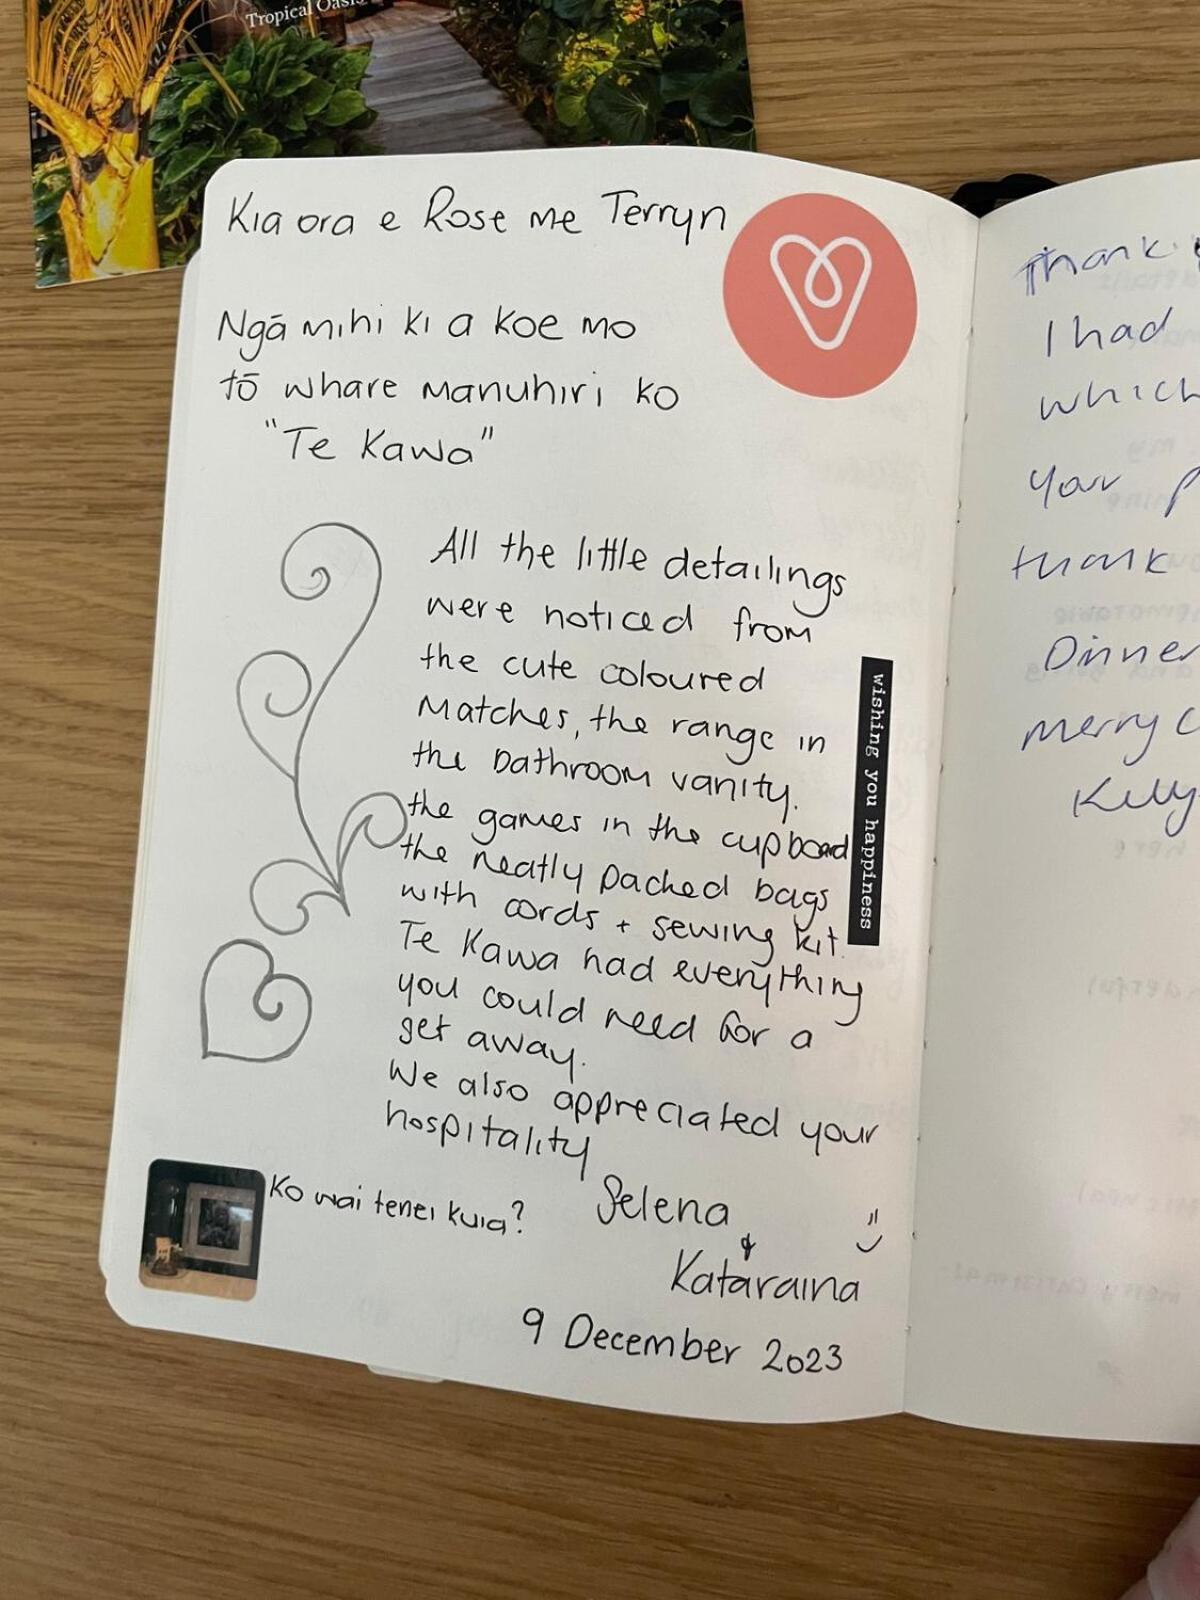 Tropical Oasis
Kia ora e Rose me Terryn
Ngā mihi ki a koe mo
tō whare manuhiri ko
"Te Kawa"
All the little detailings
were noticed from
the cute coloured
Matches, the range in
the bathroom vanity.
the games in the cupboard
the neatly packed bags
with cords + sewing kit.
Te Kawa had everything
you could need for a
get away.
We also appreciated your
hospitality
Ko wai tenei kuia?
Selena
&
Kataraina
9 December 2023
wishing you happiness
Thank
I had
which
your
thank
Dinner
merry
Kelly